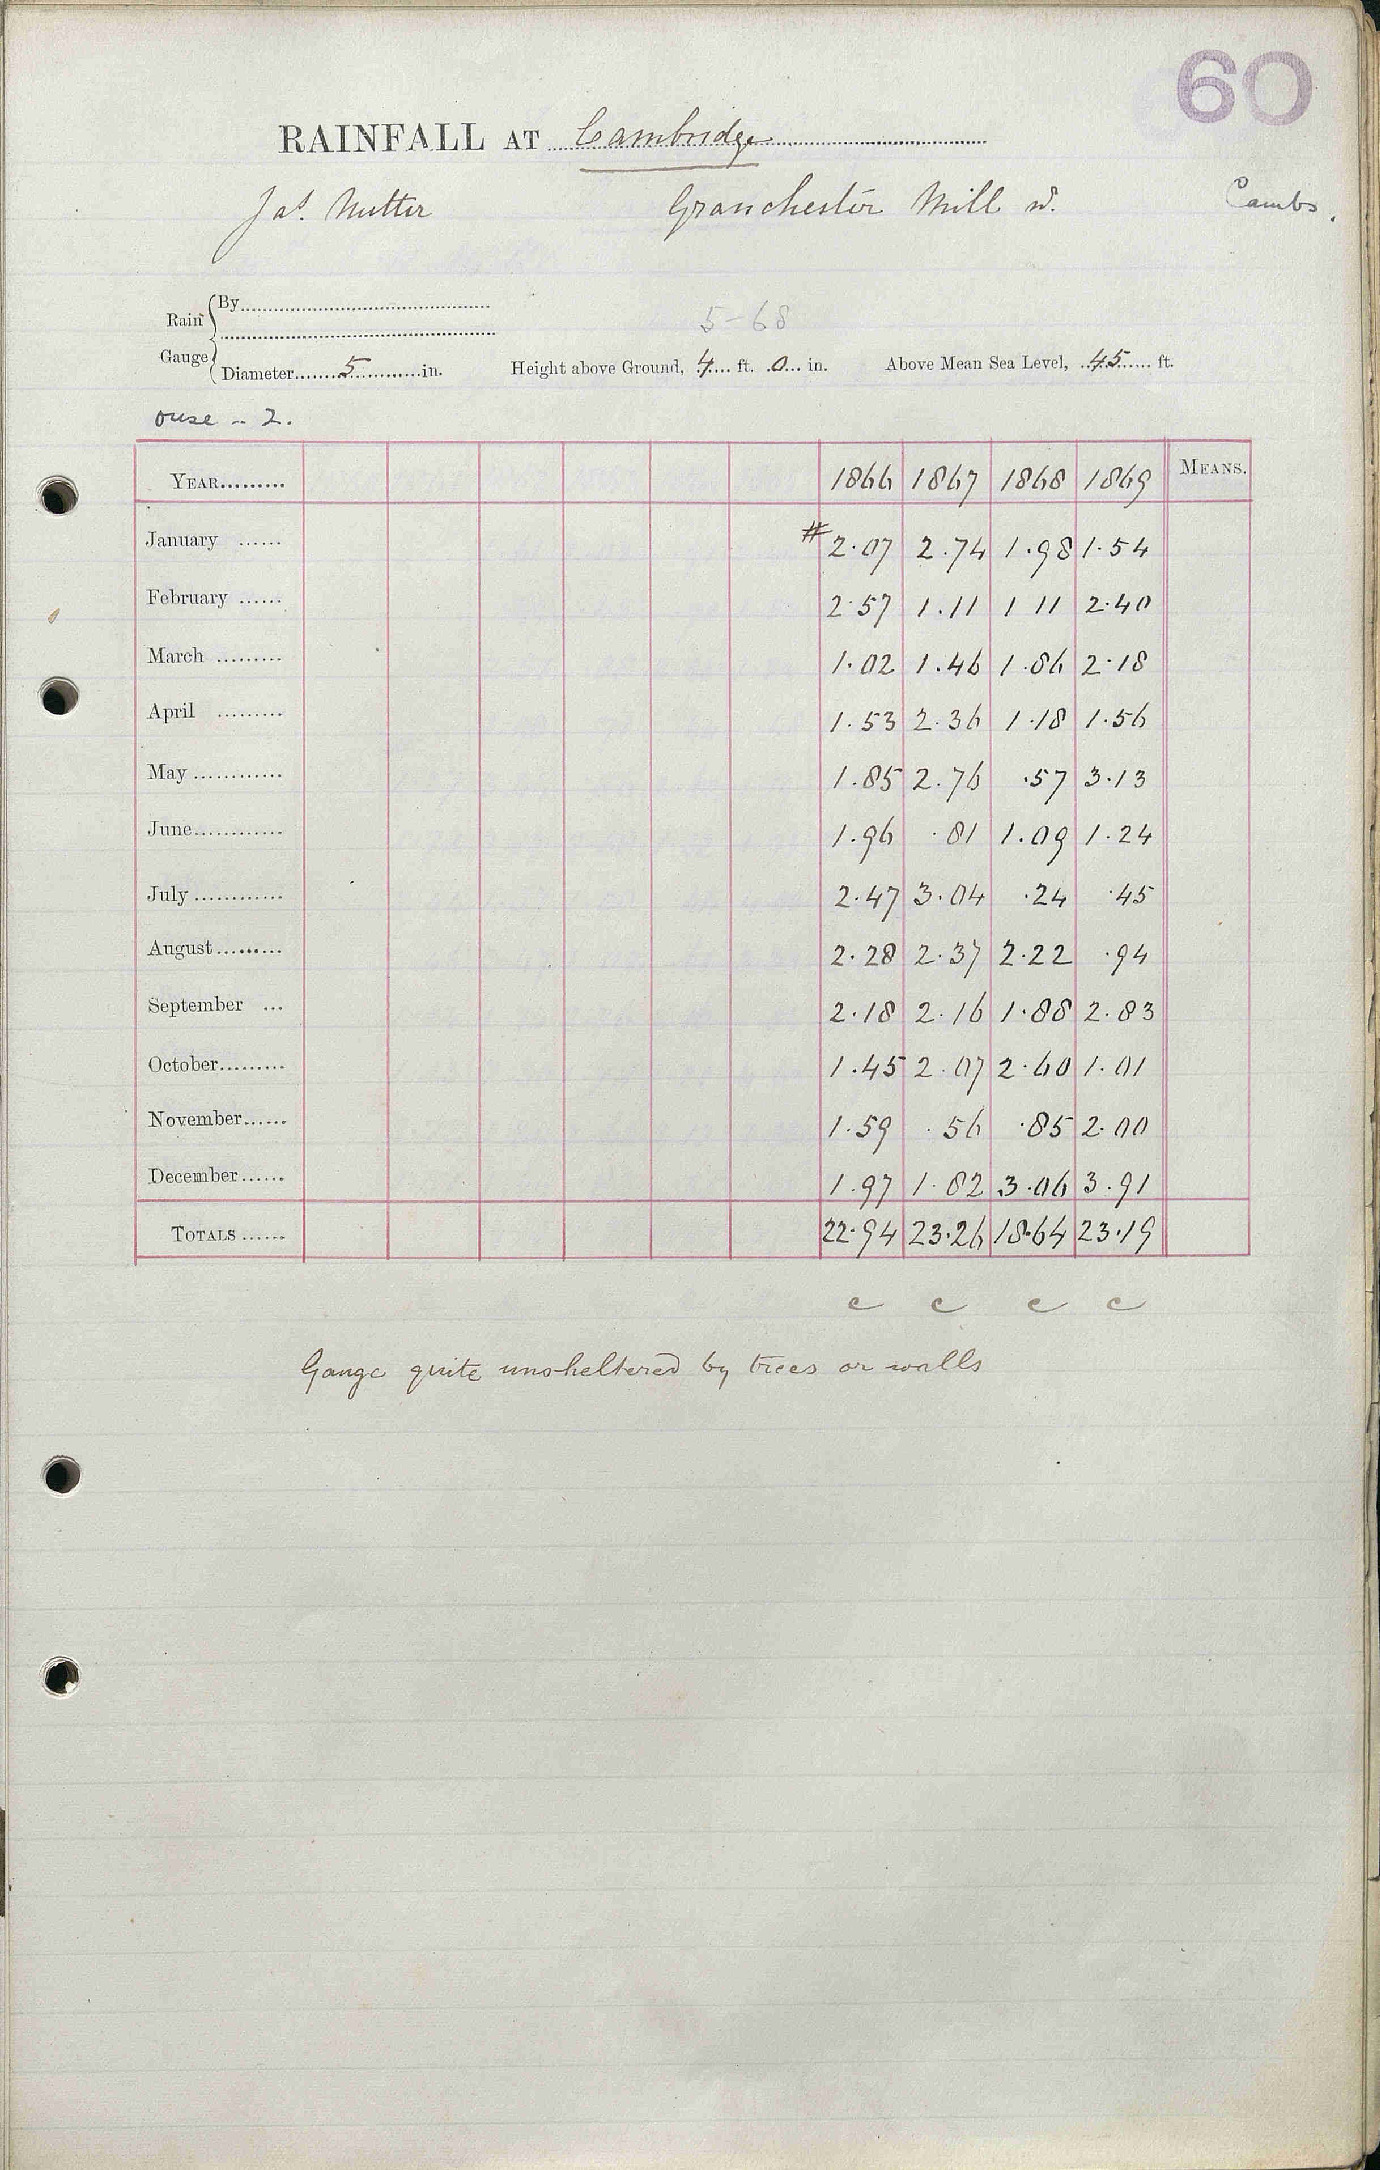 60
RAINFALL AT Cambridge
Jas. Nutter Granchester Mill Cambs.
Rain Gauge
By
5-68
Diameter 5 in. Height above Ground, 4 ft. 0 in. Above Mean Sea Level, 45 ft.
Ouse - 2.
YEAR......... 1866 1867 1868 1869 MEANS.
January ...... # 2.07 2.74 1.98 1.54
February ...... 2.57 1.11 1 11 2.40
March ......... 1.02 1.46 1.86 2.18
April ......... 1.53 2.36 1.18 1.56
May ............ 1.85 2.76 .57 3.13
June............ 1.96 .81 1.09 1.24
July ............ 2.47 3.04 .24 .45
August ......... 2.28 2.37 2.22 .94
September ... 2.18 2.16 1.88 2.83
October......... 1.45 2.07 2.60 1.01
November...... 1.59 .56 .85 2.00
December...... 1.97 1.82 3.06 3.91
TOTALS ...... 22.94 23.26 18.64 23.19
c c c c
Gauge quite unsheltered by trees or walls